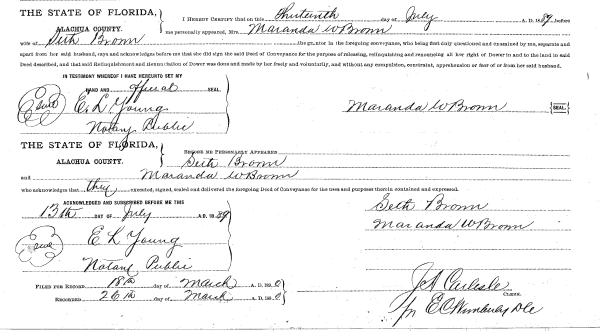 THE STATE OF FLORIDA,
ALACHUA COUNTY.
I HEREBY CERTIFY that on this Thirteenth day of July A. D. 1889, before
me personally appeared, Mrs. Maranda W Brown
wife of Seth Brown the grantor in the foregoing conveyance, who being first duly questioned and examined by me, separate and
apart from her said husband, says and acknowledges before me that she did sign the said Deed of Conveyance for the purpose of releasing, relinquishing and renouncing all her right of Dower in and to the land in said
Deed described, and that said Relinquishment and Renunciation of Dower was done and made by her freely and voluntarily, and without any compulsion, constraint, apprehension or fear of or from her said husband.
IN TESTIMONY WHEREOF I HAVE HEREUNTO SET MY
HAND AND official SEAL.
Seal E. L Young
Maranda W Brown SEAL.
Notary Public
THE STATE OF FLORIDA,
ALACHUA COUNTY.
BEFORE ME PERSONALLY APPEARED
Seth Brown
and Maranda W Brown
who acknowledges that they executed, signed, sealed and delivered the foregoing Deed of Conveyance for the uses and purposes therein contained and expressed.
ACKNOWLEDGED AND SUBSCRIBED BEFORE ME THIS
13th DAY OF July A. D. 1889
Seth Brown
Maranda W Brown
Seal E L Young
Notary Public
FILED FOR RECORD 18th day of March A. D. 1890
RECORDED 26th day of March A. D. 1890
J A Carlisle
CLERK.
pr E C Wimberly DC